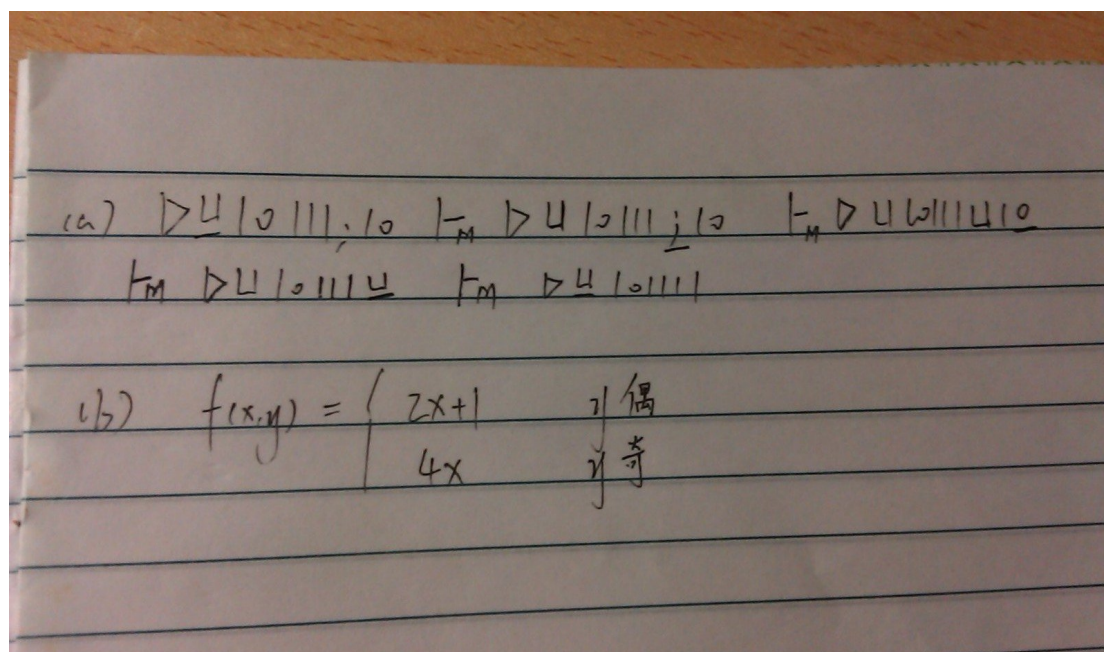 (a) ▷⊔10111;10 ⊢M ▷⊔10111;10 ⊢M ▷⊔10111⊔10
⊢M ▷⊔10111⊔ ⊢M ▷⊔101111
(b) f(x,y) = { 2x+1 y偶
4x y奇